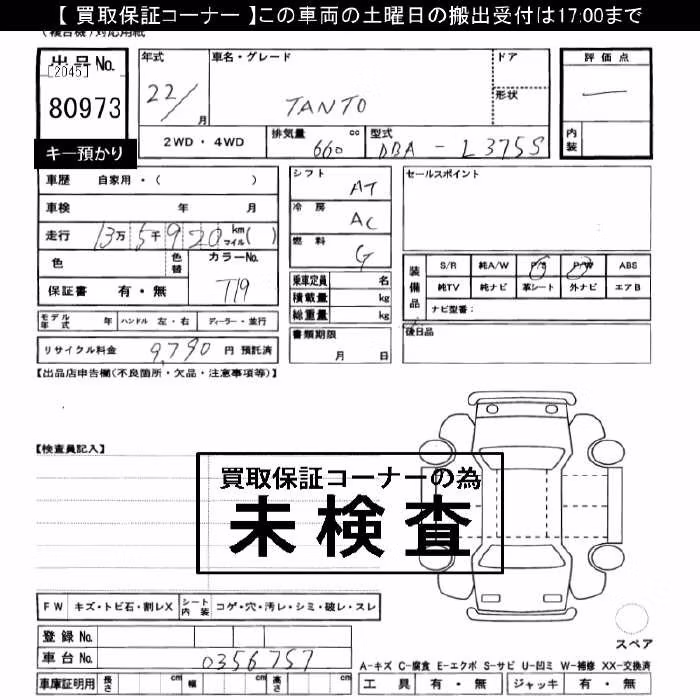 【 買取保証コーナー 】この車両の土曜日の搬出受付は17:00まで
(複合機)対応用紙
出品No. 年式 車名・グレード ドア 評価点
[2045]
80973 22/ 月 TANTO 形状 —
2WD・4WD 排気量 660 cc 型式 DBA - L375S 内装
キー預かり
車歴 自家用・( ) シフト AT セールスポイント
車検 年 月 冷房 AC
走行 13万 5千 920 km マイル ( ) 燃料 G
色 色替 カラーNo. T19
保証書 有・無
装備品 S/R 純A/W P/S P/W ABS
乗車定員 名 純TV 純ナビ 革シート 外ナビ エアB
積載量 kg ナビ型番:
総重量 kg
モデル年式 年 ハンドル 左・右 ディーラー・並行 書類期限 月 日 後日品
リサイクル料金 9,790 円 預託済
【出品店申告欄(不良箇所・欠品・注意事項等)】
【検査員記入】
買取保証コーナーの為
未検査
FW キズ・トビ石・割レX シート内装 コゲ・穴・汚レ・シミ・破レ・スレ
登録No.
スペア
車台No. 0356757
A-キズ C-腐食 E-エクボ S-サビ U-凹ミ W-補修 XX-交換済
車庫証明用 長さ cm 幅 cm 高さ cm 工具 有・無 ジャッキ 有・無